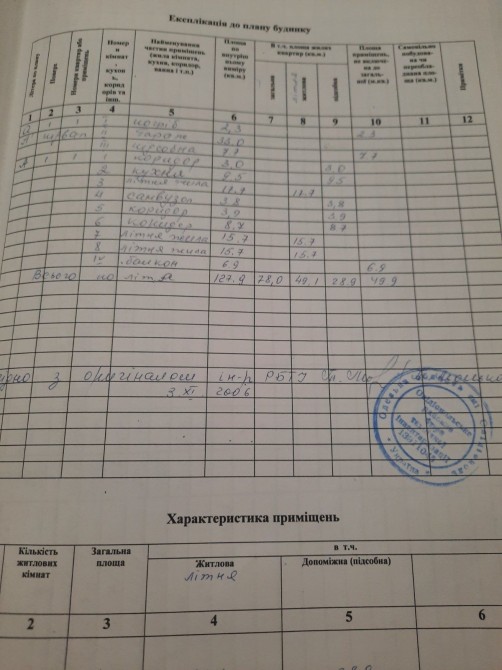 Експлікація до плану будинку
Літера по плану
Поверх
Номери квартир або приміщень
Номери кімнат, кухонь, коридорів та інш.
Найменування частин приміщень (жила кімната, кухня, коридор, ванна і т.п.)
Площа по внутрішньому виміру (кв.м.)
В т.ч. площа житлових квартир (кв.м.)
загальна
літня
підсобна
Площа приміщень, не включена до загальної (м.кв.)
Самовільно побудована чи переобладнана площа (кв.м.)
Примітки
1 2 3 4 5 6 7 8 9 10 11 12
1 1 I 2,3 2,3
підвал II гараж 33,0
III 7,7 7.7
А 1 1 1 коридор 3,0 3,0
2 кухня 9,5 9,5
3 літня жила 17.7 17.7
4 санвузол 3,8 3,8
5 коридор 3,9 3,9
6 коридор 8.7 8.7
7 літня жила 15.7 15.7
8 літня жила 15.7 15.7
IV балкон 6.9 6.9
Всього по літ А 127.9 78,0 49,1 28,9 49,9
з оригіналом ін-р РБТІ
3 XI 2006
Характеристика приміщень
Кількість житлових кімнат
Загальна площа
в т.ч.
Житлова
літня
Допоміжна (підсобна)
2 3 4 5 6